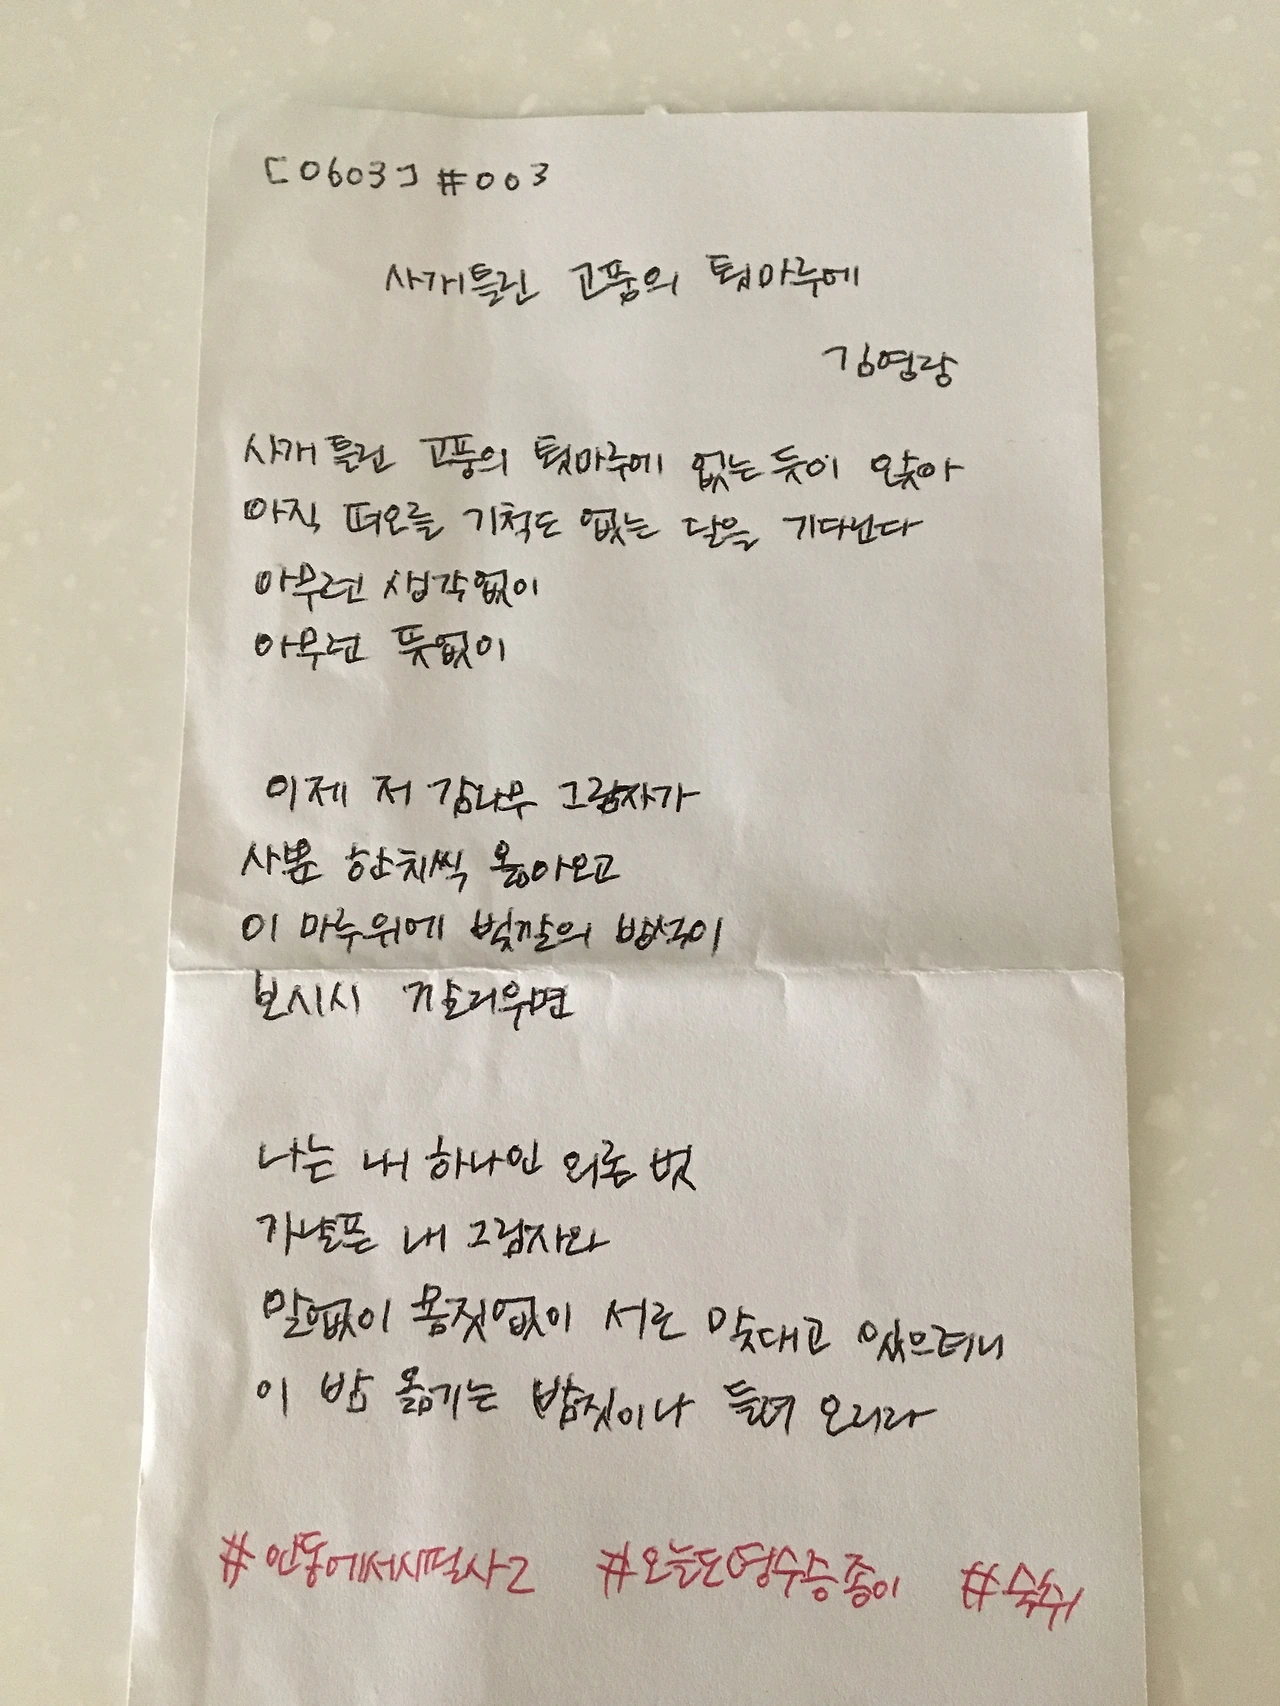 [0603] #003
사개틀린 고풍의 툇마루에
김영랑
사개 틀린 고풍의 툇마루에 없는 듯이 앉아
아직 떠오를 기척도 없는 달을 기다린다
아무런 생각없이
아무런 뜻없이
이제 저 감나무 그림자가
사뿐 한치씩 옮아오고
이 마루위에 빛깔의 방석이
보시시 깔리우면
나는 내 하나인 외론 벗
가냘픈 내 그림자와
말없이 몸짓없이 서로 맞대고 있으려니
이 밤 옮기는 발짓이나 들려 오리라
#안동에서시필사2 #오늘도영수증종이 #숙취